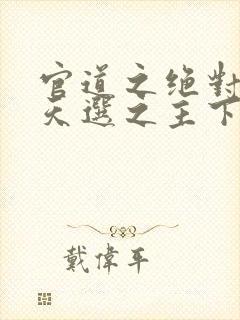 官道之绝對
天選之主下
戴偉平